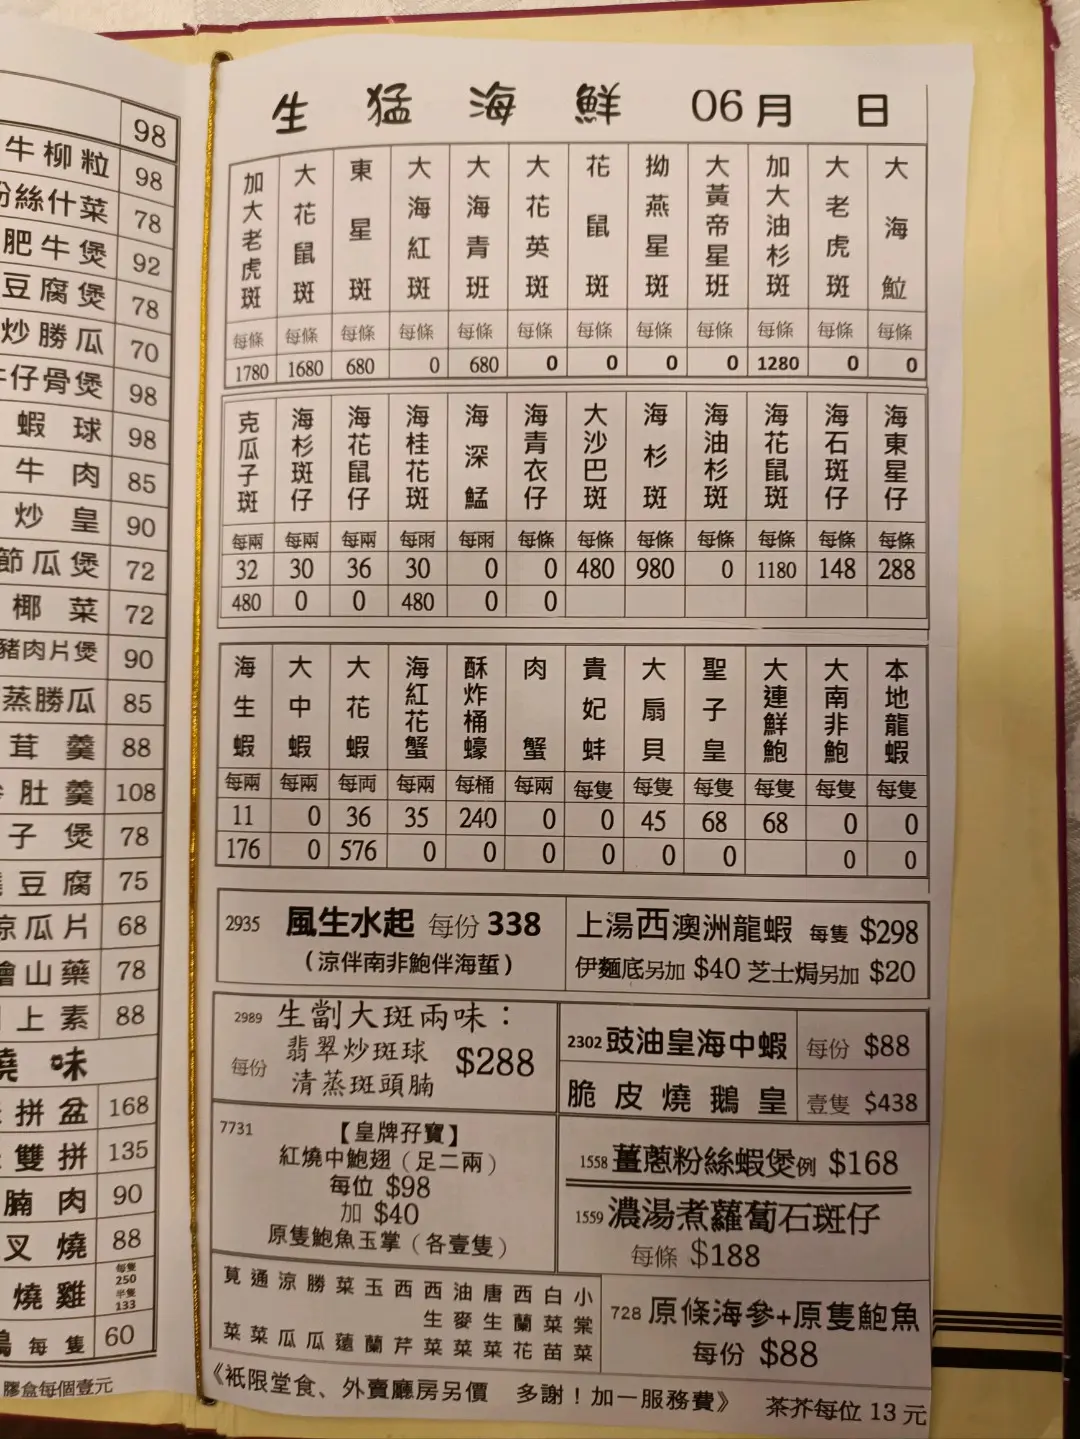 98
牛柳粒 98
粉絲什菜 78
肥牛煲 92
豆腐煲 78
炒勝瓜 70
牛仔骨煲 98
蝦球 98
牛肉 85
炒皇 90
節瓜煲 72
椰菜 72
豬肉片煲 90
蒸勝瓜 85
茸羹 88
肚羹 108
子煲 78
豆腐 75
涼瓜片 68
燴山藥 78
上素 88
燒味
拼盆 168
雙拼 135
腩肉 90
叉燒 88
燒雞 每隻 250 半隻 133
每隻 60
膠盒每個壹元
生猛海鮮 06月 日
加大老虎斑 大花鼠斑 東星斑 大海紅斑 大海青班 大花英斑 花鼠斑 拗燕星斑 大黃帝星班 加大油杉斑 大老虎斑 大海鮋
每條 每條 每條 每條 每條 每條 每條 每條 每條 每條 每條 每條
1780 1680 680 0 680 0 0 0 0 1280 0 0
克瓜子斑 海杉斑仔 海花鼠仔 海桂花斑 海深鯭 海青衣仔 大沙巴斑 海杉斑 海油杉斑 海花鼠斑 海石斑仔 海東星仔
每兩 每兩 每兩 每兩 每兩 每條 每條 每條 每條 每條 每條 每條
32 30 36 30 0 0 480 980 0 1180 148 288
480 0 0 480 0 0
海生蝦 大中蝦 大花蝦 海紅花蟹 酥炸桶蠔 肉蟹 貴妃蚌 大扇貝 聖子皇 大連鮮鮑 大南非鮑 本地龍蝦
每兩 每兩 每両 每兩 每桶 每兩 每隻 每隻 每隻 每隻 每隻 每隻
11 0 36 35 240 0 0 45 68 68 0 0
176 0 576 0 0 0 0 0 0 0 0
2935 風生水起 每份 338
（涼伴南非鮑伴海蜇）
上湯西澳洲龍蝦 每隻 $298
伊麵底另加 $40 芝士焗另加 $20
2989 生劏大斑兩味：
翡翠炒斑球
每份 $288
清蒸斑頭腩
2302 豉油皇海中蝦 每份 $88
脆皮燒鵝皇 壹隻 $438
7731 【皇牌孖寶】
紅燒中鮑翅（足二兩）
每位 $98
加 $40
原隻鮑魚玉掌（各壹隻）
1558 薑蔥粉絲蝦煲例 $168
1559 濃湯煮蘿蔔石斑仔
每條 $188
莧通涼勝菜玉西西油唐西白小
生麥生蘭菜棠
菜菜瓜瓜薳蘭芹菜菜菜花苗菜
728 原條海參+原隻鮑魚
每份 $88
《祇限堂食、外賣廳房另價 多謝！加一服務費》 茶芥每位 13 元